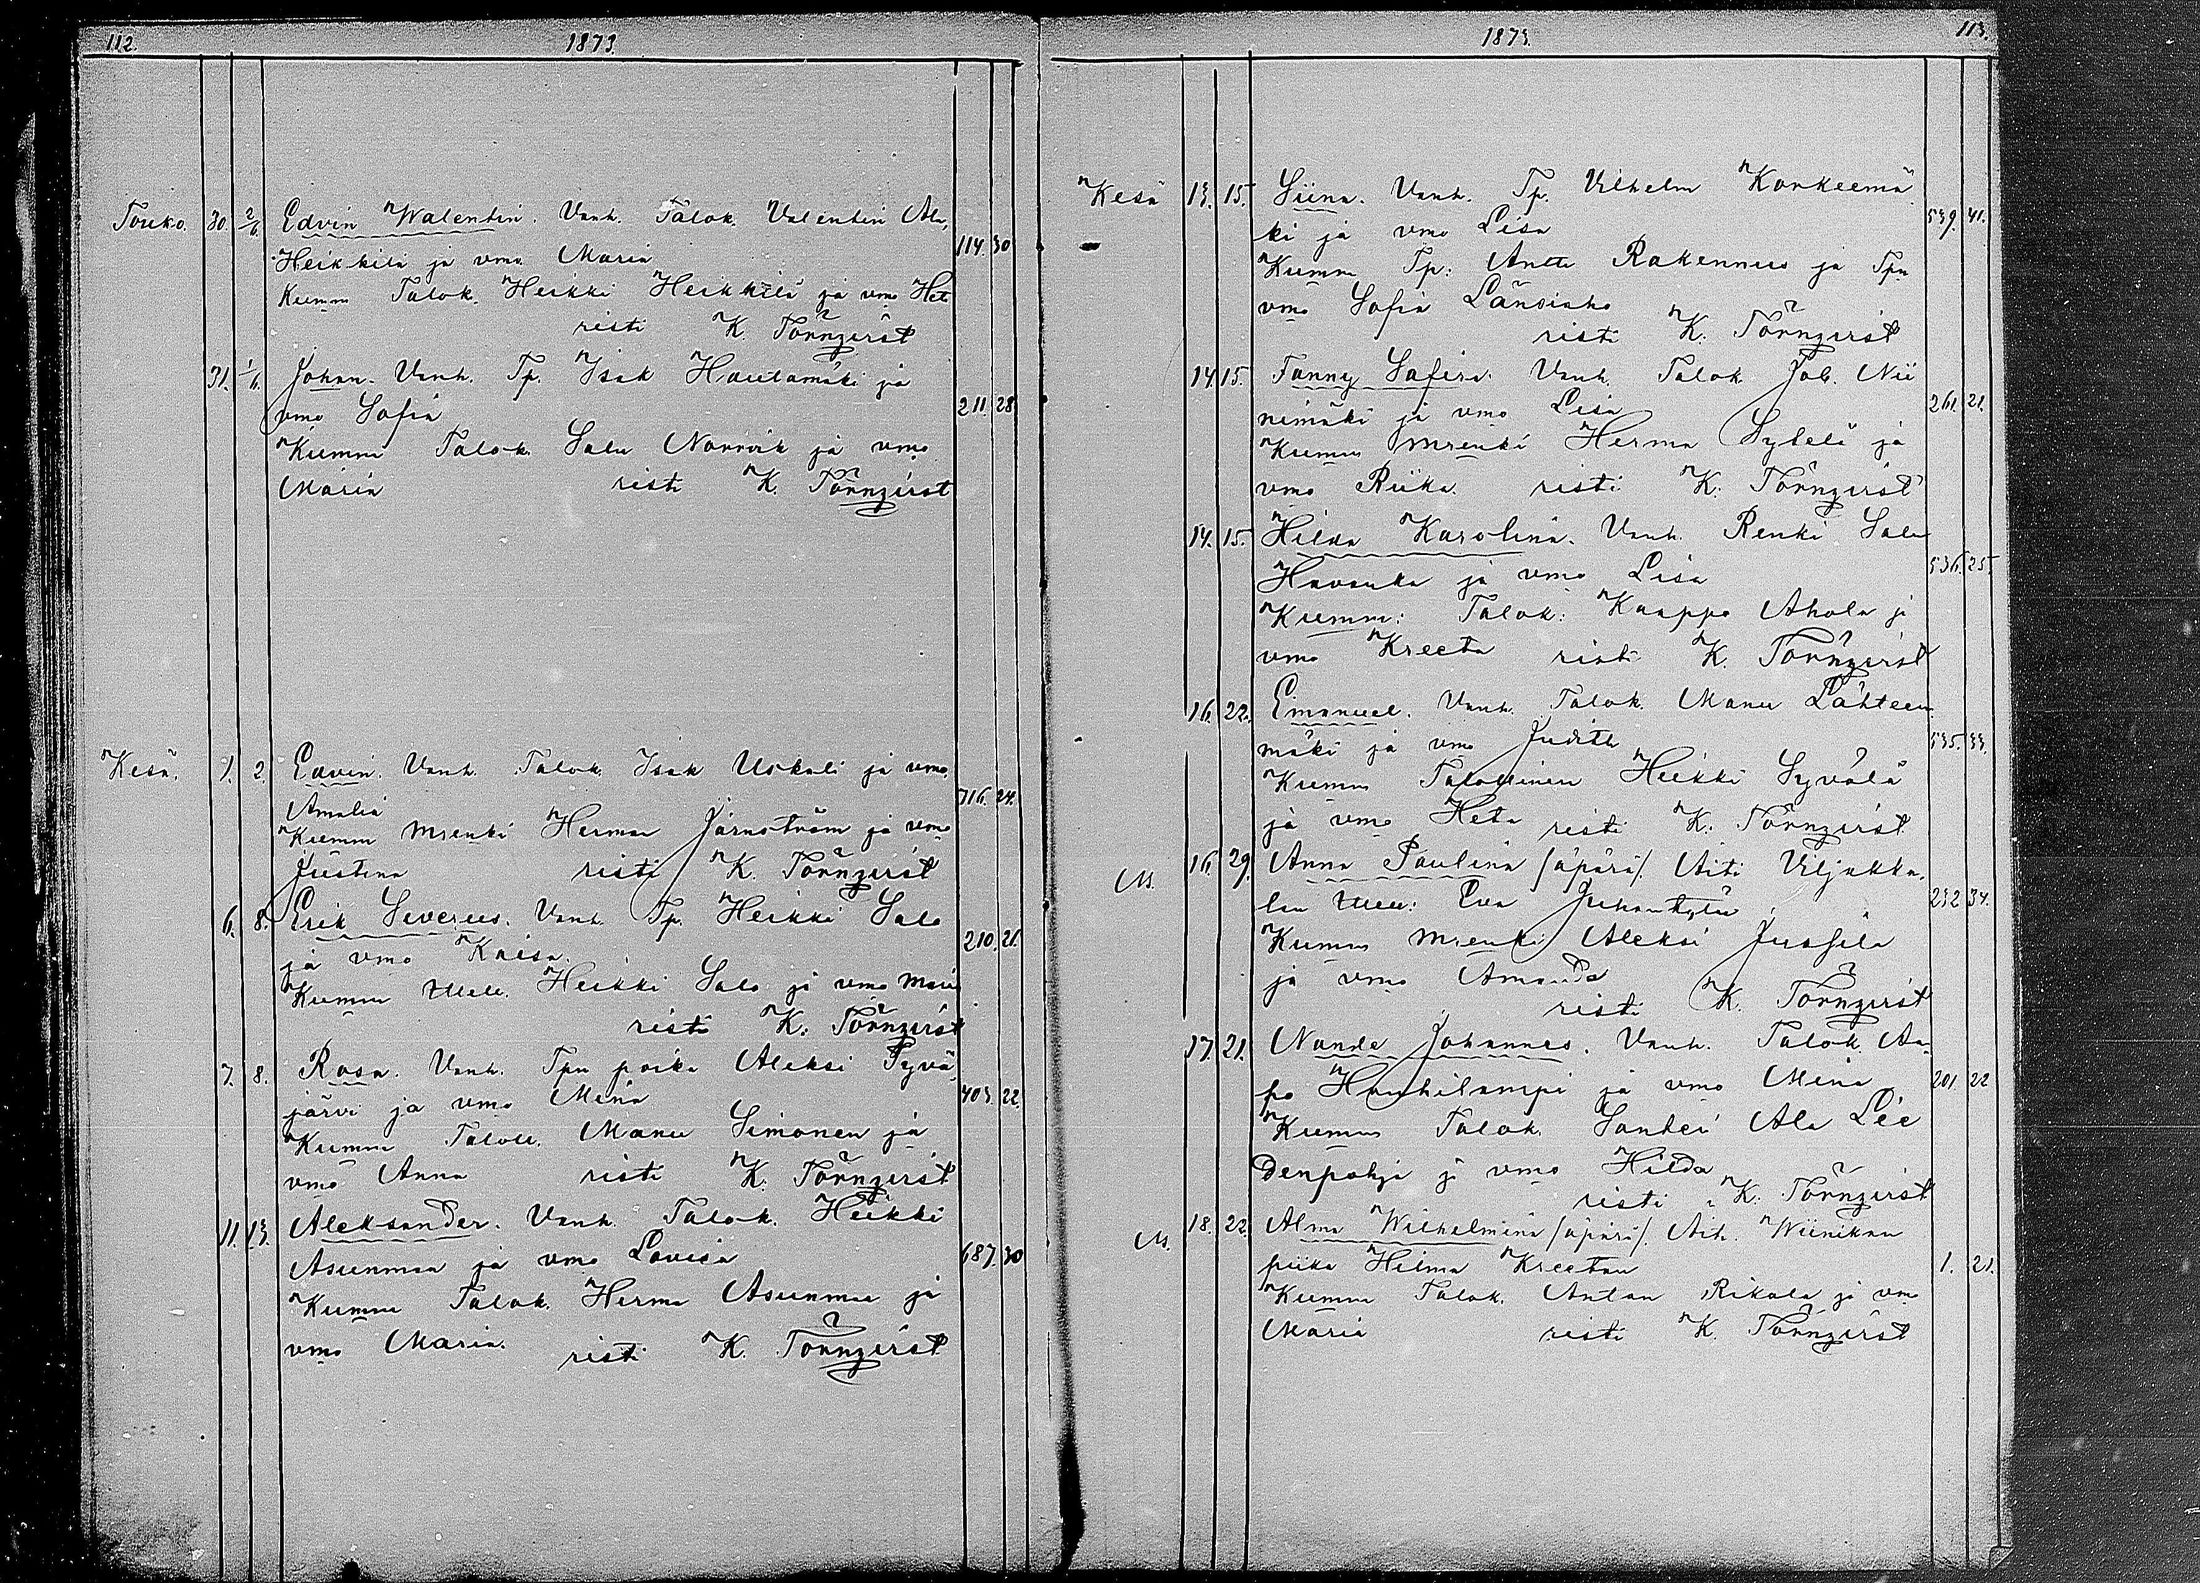 112 1873.
Touko. 30. 2/6. Edvin Walentin. Vanh. Talok. Valentin Ala,
Heikkilä ja vmo Maria 114. 30
Kumm Talok. Heikki Heikkilä ja vmo Heta
risti K. Törnqvist
31. 1/6. Johan. Vanh. Tp. Isak Hautamäki ja
vmo Sofia 211. 28
Kumm Talok. Salu Norrvik ja vmo
Maria risti K. Törnqvist
Kesä. 1. 2. Edvin. Vanh. Talok. Isak Uskali ja vmo
Amalia 716. 24.
Kumm Mrenki Herman Järnström ja vmo
Justina risti K. Törnqvist
6. 8. Erik Severus. Vanh. Tp. Heikki Salo
ja vmo Kaisa. 210. 21.
Kumm Heikki Salo ja vmo Maria
risti K. Törnqvist
7. 8. Rosa. Vanh. Tpn poika Aleksi Syvä
järvi ja vmo Mina 403. 22.
Kumm Manu Simonen ja
vmo Anna risti K. Törnqvist
11. 13. Aleksander. Vanh. Talok. Heikki
Asunmaa ja vmo Lovisa 687. 30
Kumm Talok. Herma Asunmaa ja
vmo Maria. risti K. Törnqvist
1873. 113.
Kesä 13. 15. Siina. Vanh. Tp. Vilhelm Korkeemä
ki ja vmo Lisa 539. 41.
Kumm Tp. Antti Rakennus ja Tpn
vmo Sofia Länsiaho
risti K. Törnqvist
14. 15. Fanny Safira. Vanh. Talok. Jak. Nii
nimäki ja vmo Lisa 261. 21.
Kumm Mrenki Herma Sykeli ja
vmo Riika. risti K. Törnqvist
14. 15. Hilda Karolina. Vanh. Renki Salu
ja vmo Lisa 536. 25.
Kumm: Talok: Kaappo Ahola ja
vmo Kreeta risti K. Törnqvist
16. 22. Emanuel. Vanh. Talok. Manu Lähteen
mäki ja vmo Judith 535. 33.
Kumm Talollinen Heikki Syvälä
ja vmo Heta risti K. Törnqvist
Ms. 16. 29. Anna Paulina /äpärä/. Äiti Viljakka,
Eva 232 34.
Kumm Mrenki Aleksi Jussila
ja vmo Amanda
risti K. Törnqvist
17. 21. Nande Johannes. Vanh. Talok. Aa
po Hauhilampi ja vmo Mina 201. 22
Kumm Talok. Santeri Ala Lie
denpohja ja vmo Hilda
risti K. Törnqvist
Ms. 18. 22. Alma Wilhelmina /äpärä/. Äiti Wiinikan
piika Hilma Kreetan 1. 21.
Kumm Talok. Antan Rikala ja vmo
Maria risti K. Törnqvist